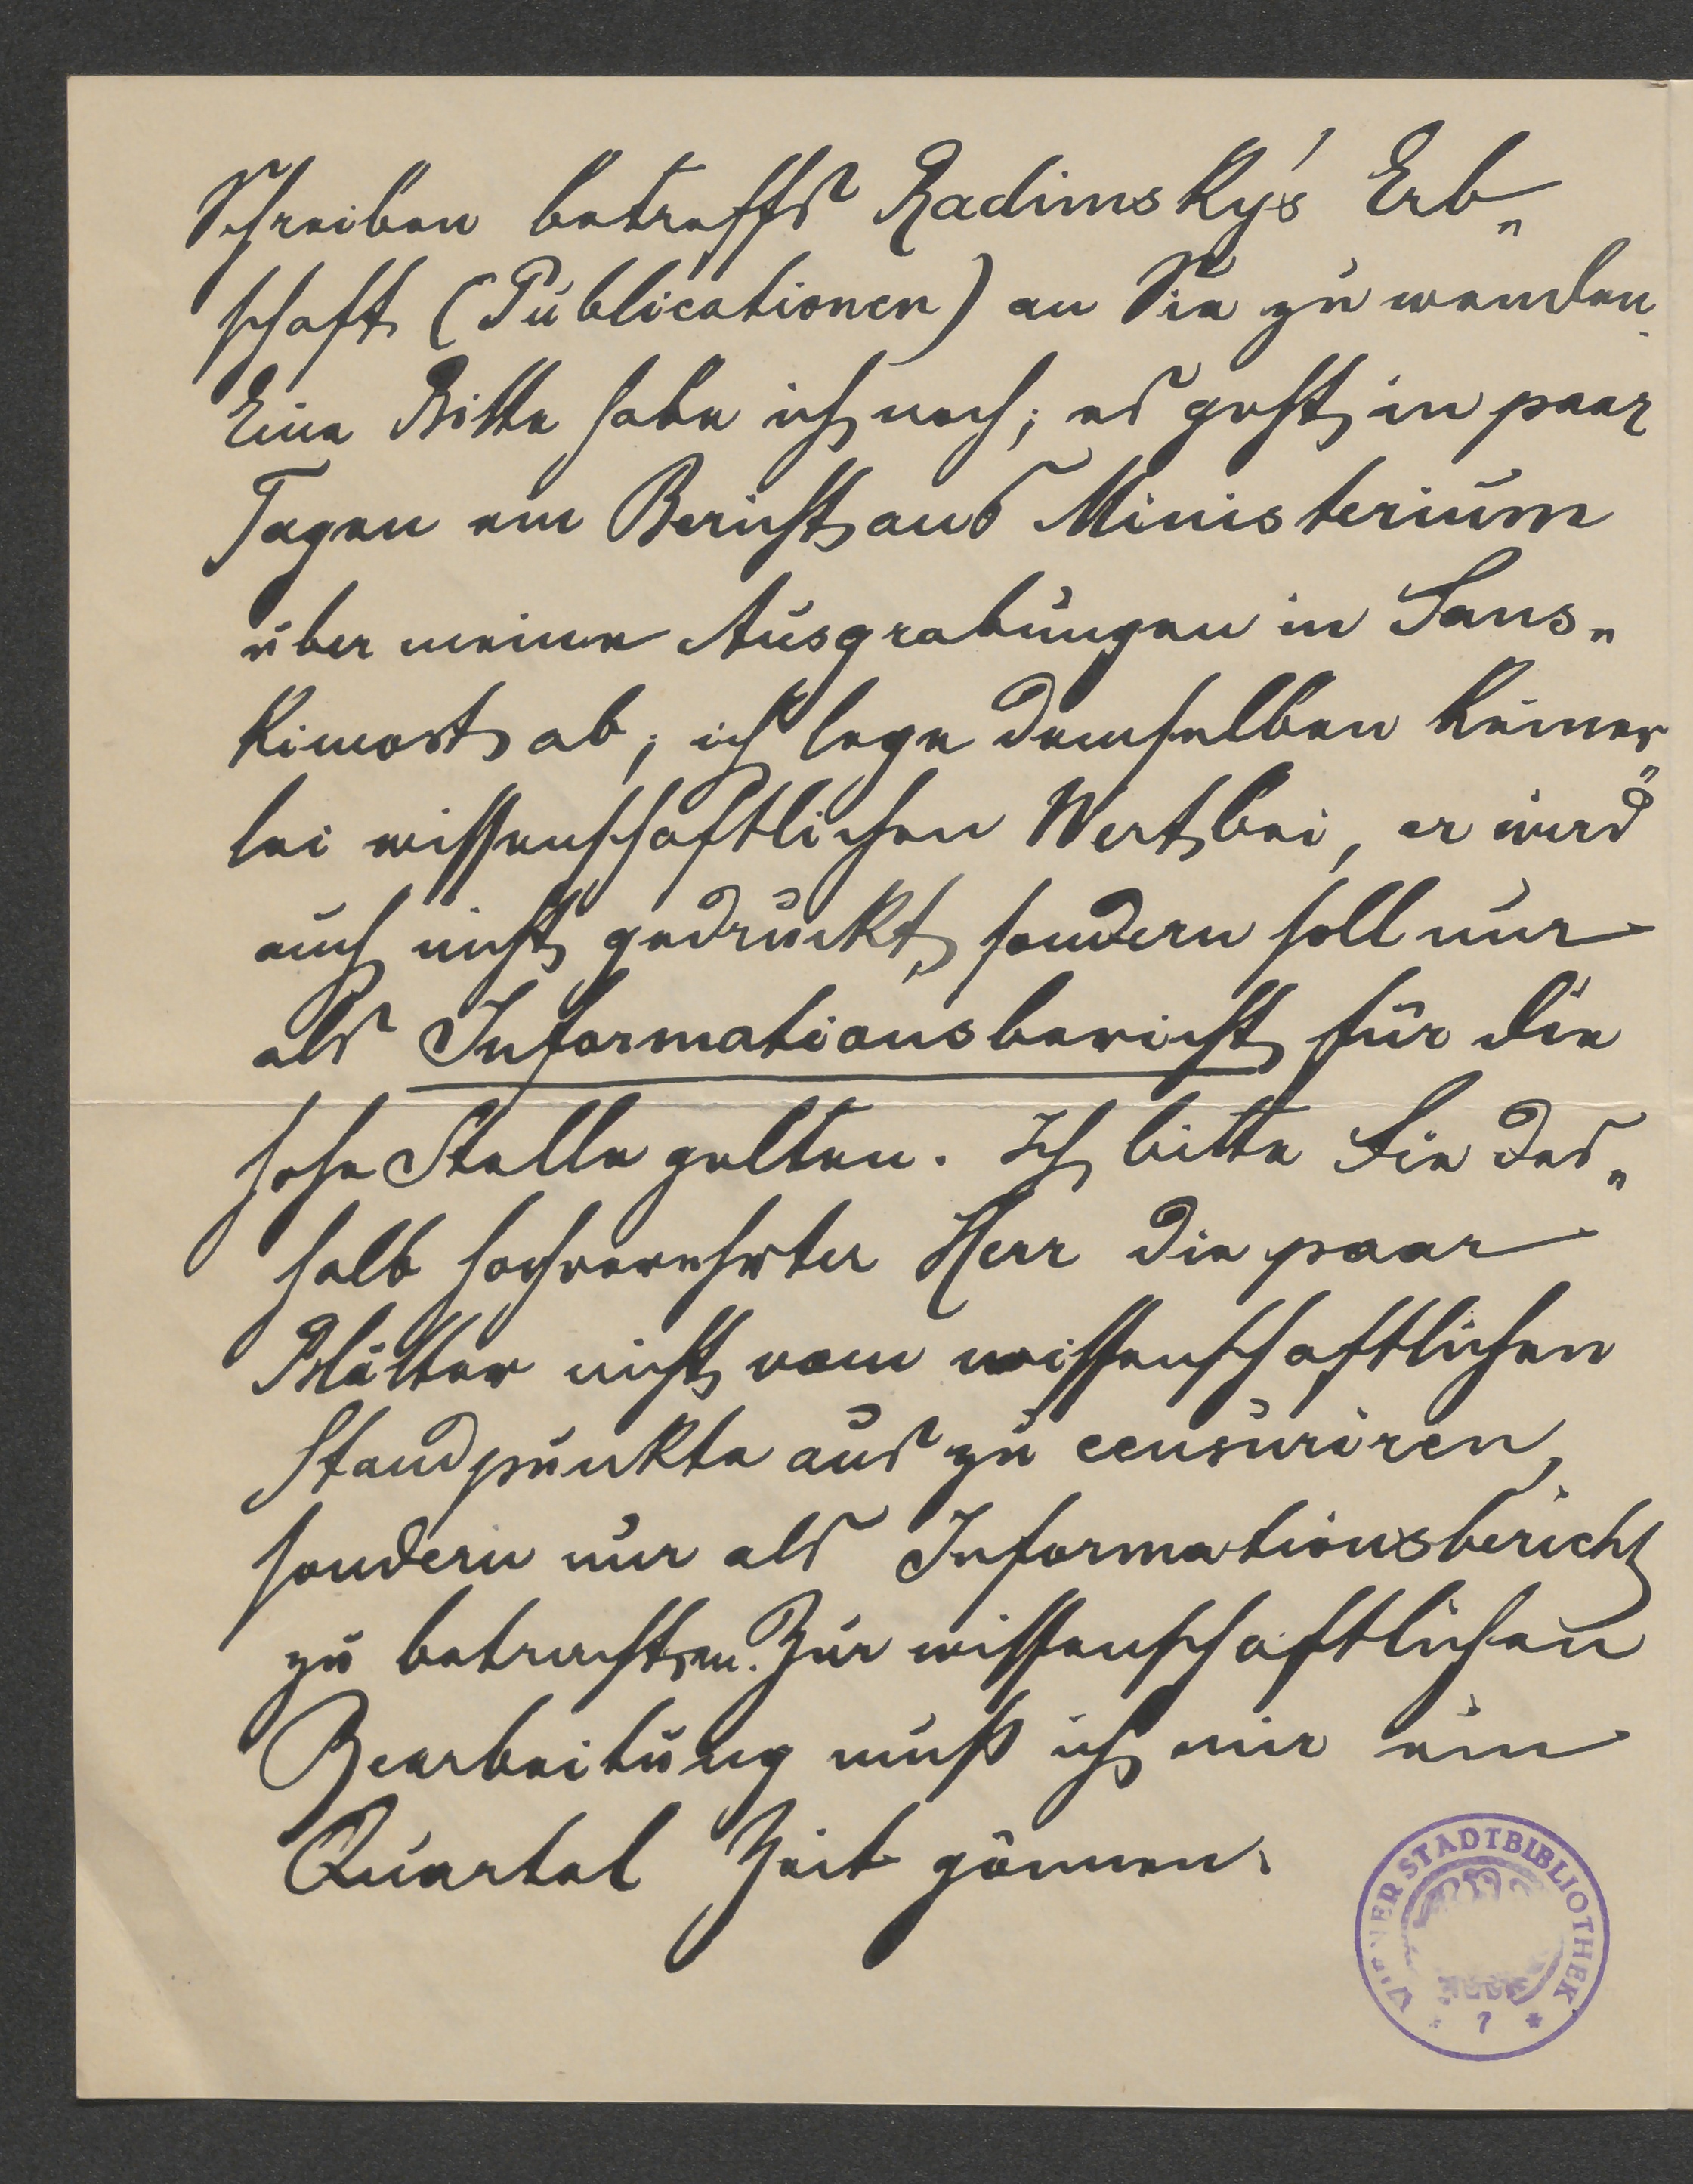 Schreiben betreffs Radimský's Erb„
schaft (Publicationen) an Sie zu wenden.
Eine Bitte habe ich noch; es geht in paar
Tagen ein Bericht ans Ministerium
über meine Ausgrabungen in Sans„
kimost ab; ich lege demselben keiner„
lei wissenschaftlichen Wert bei, er wird
auch nicht gedruckt, sondern soll nur
als Informationsbericht für die
hohe Stelle gelten. Ich bitte Sie des„
halb hochverehrter Herr die paar
Blätter nicht vom wissenschaftlichen
Standpunkte aus zu censuriren,
sondern nur als Informationsbericht
zu betrachten. Zur wissenschaftlichen
Bearbeitung muß ich mir ein
Quartal Zeit gönnen.
WIENER STADTBIBLIOTHEK
* 7 *